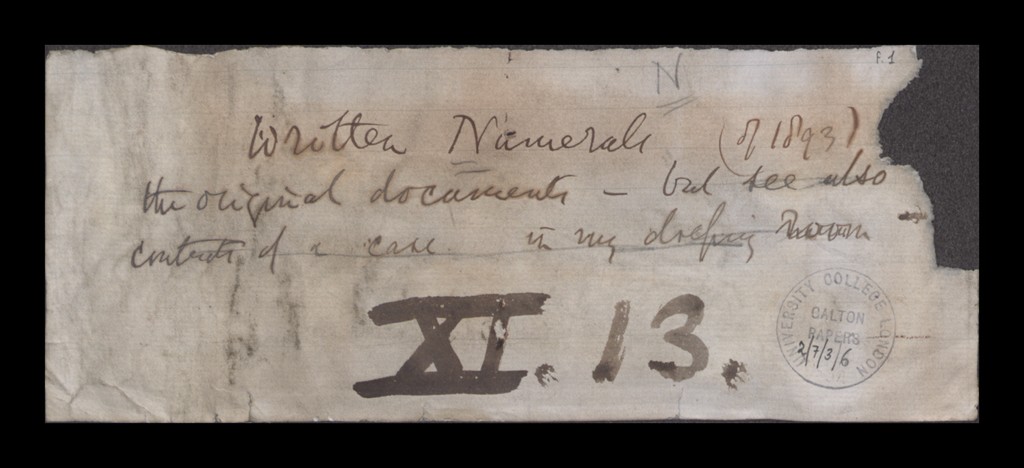 f. 1
N
Written Numerals (of 1893)
the original documents – but see also
contents of a case in my dressing Room
XI. 13.
UNIVERSITY COLLEGE LONDON
GALTON
PAPERS
2/7/3/6